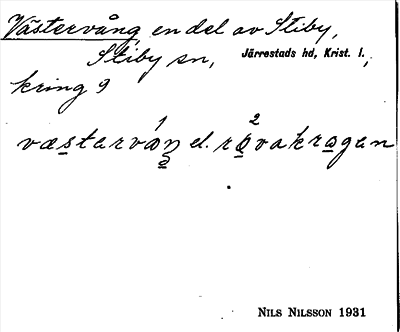 Västervång en del av Stiby,
Stiby sn, Järrestads hd, Krist. l.,
kring 9
1 2
væstarvåŋ el. råvakragan
NILS NILSSON 1931